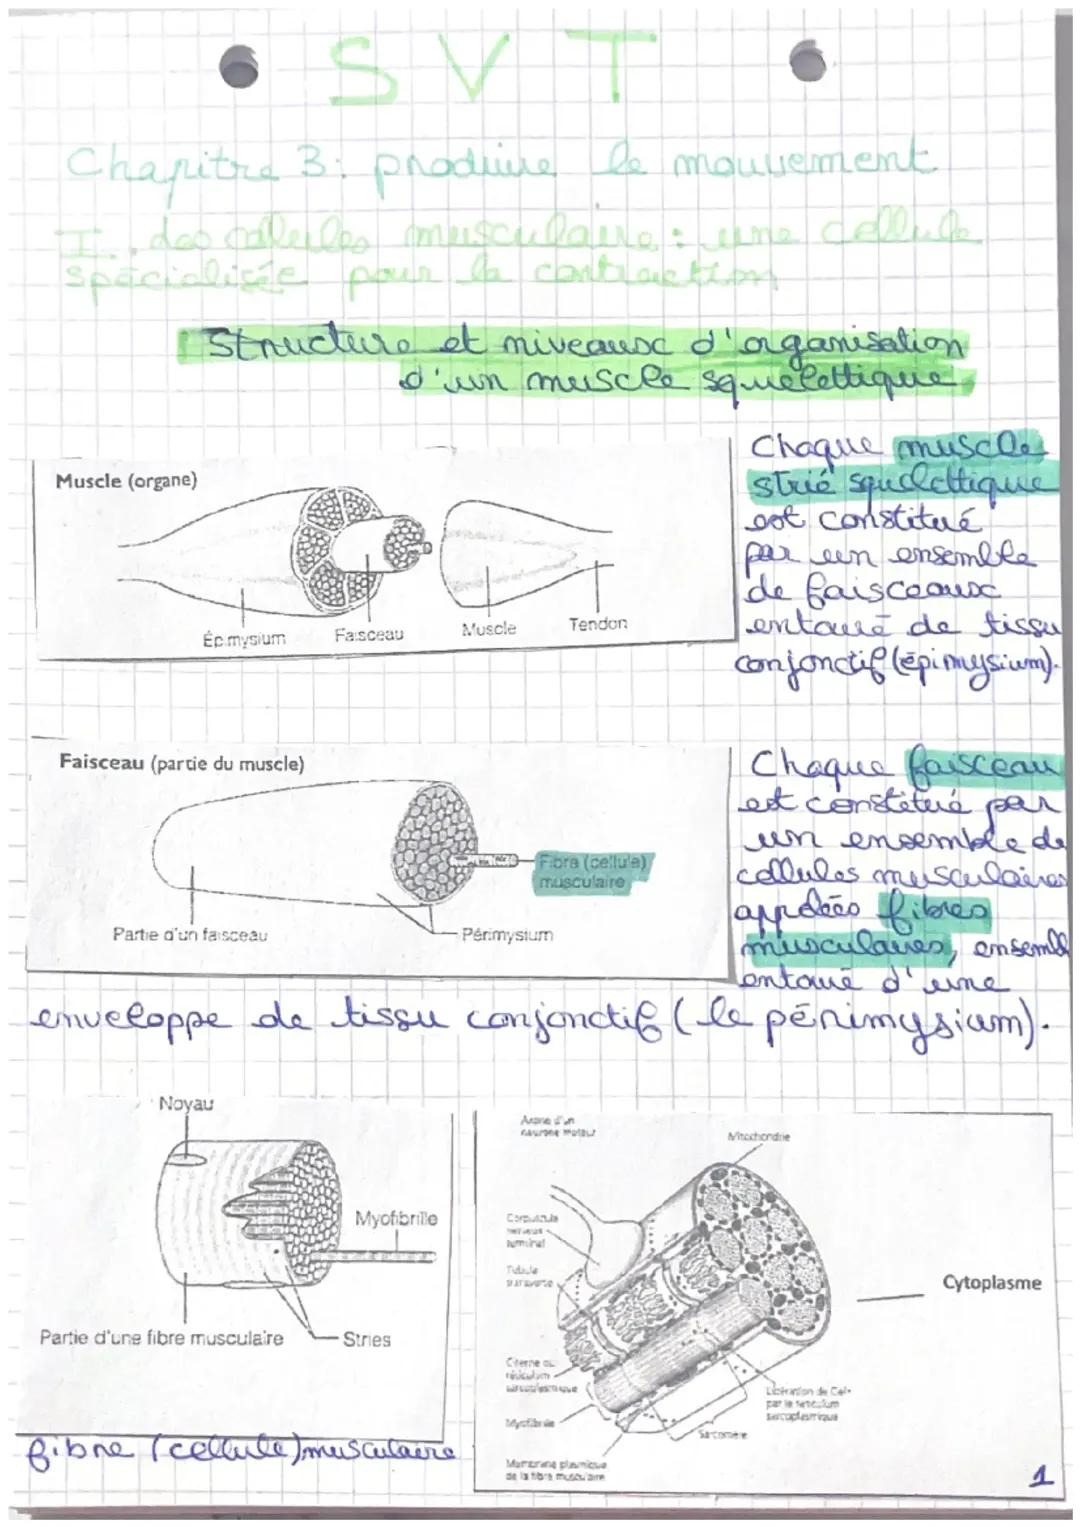 SVT
Chapitre 3: produire le mouvement
I. des cellules musculaire: une cellule
spécialisée pour la contraction
Structure et niveaux d'organisation
d'un muscle squelettique
Muscle (organe)
Épimysium
Faisceau
Muscle
Tendon
Chaque muscle
strié squelettique
est constitué
par un ensemble
de faisceaux
entouré de tissu
conjonctif (épimysium).
Faisceau (partie du muscle)
Fibre (cellule)
musculaire
Partie d'un faisceau
Périmysium
Chaque faisceau
est constitué par
un ensemble de
cellules musculaires
appelées fibres
musculaires, ensembl
entouré d'une
enveloppe de tissu conjonctif (le périmysium).
Noyau
Myofibrille
Partie d'une fibre musculaire
Stries
fibre (cellule) musculaire
Axone d'un
neurone moteur
Mitochondrie
Corpuscule
nerveux
terminal
Tubule
transverse
Cytoplasme
Citerne du
réticulum
sarcoplasmique
Libération de Ca²⁺
par le réticulum
sarcoplasmique
Myofibrille
Sarcomère
Membrane plasmique
de la fibre musculaire
1